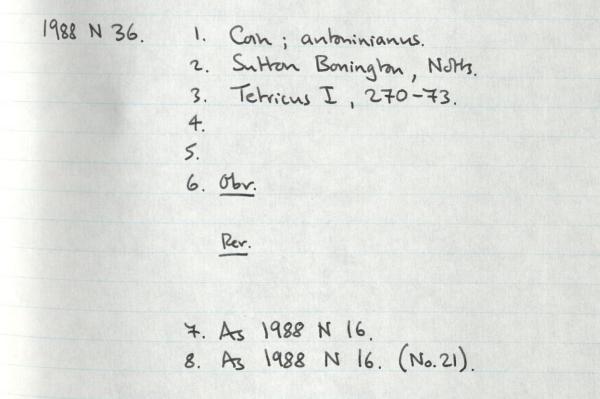 1988 N 36. 1. Coin ; antoninianus.
2. Sutton Bonington, Notts.
3. Tetricus I, 270-73.
4.
5.
6. Obv.
Rev.
7. As 1988 N 16.
8. As 1988 N 16. (No. 21).